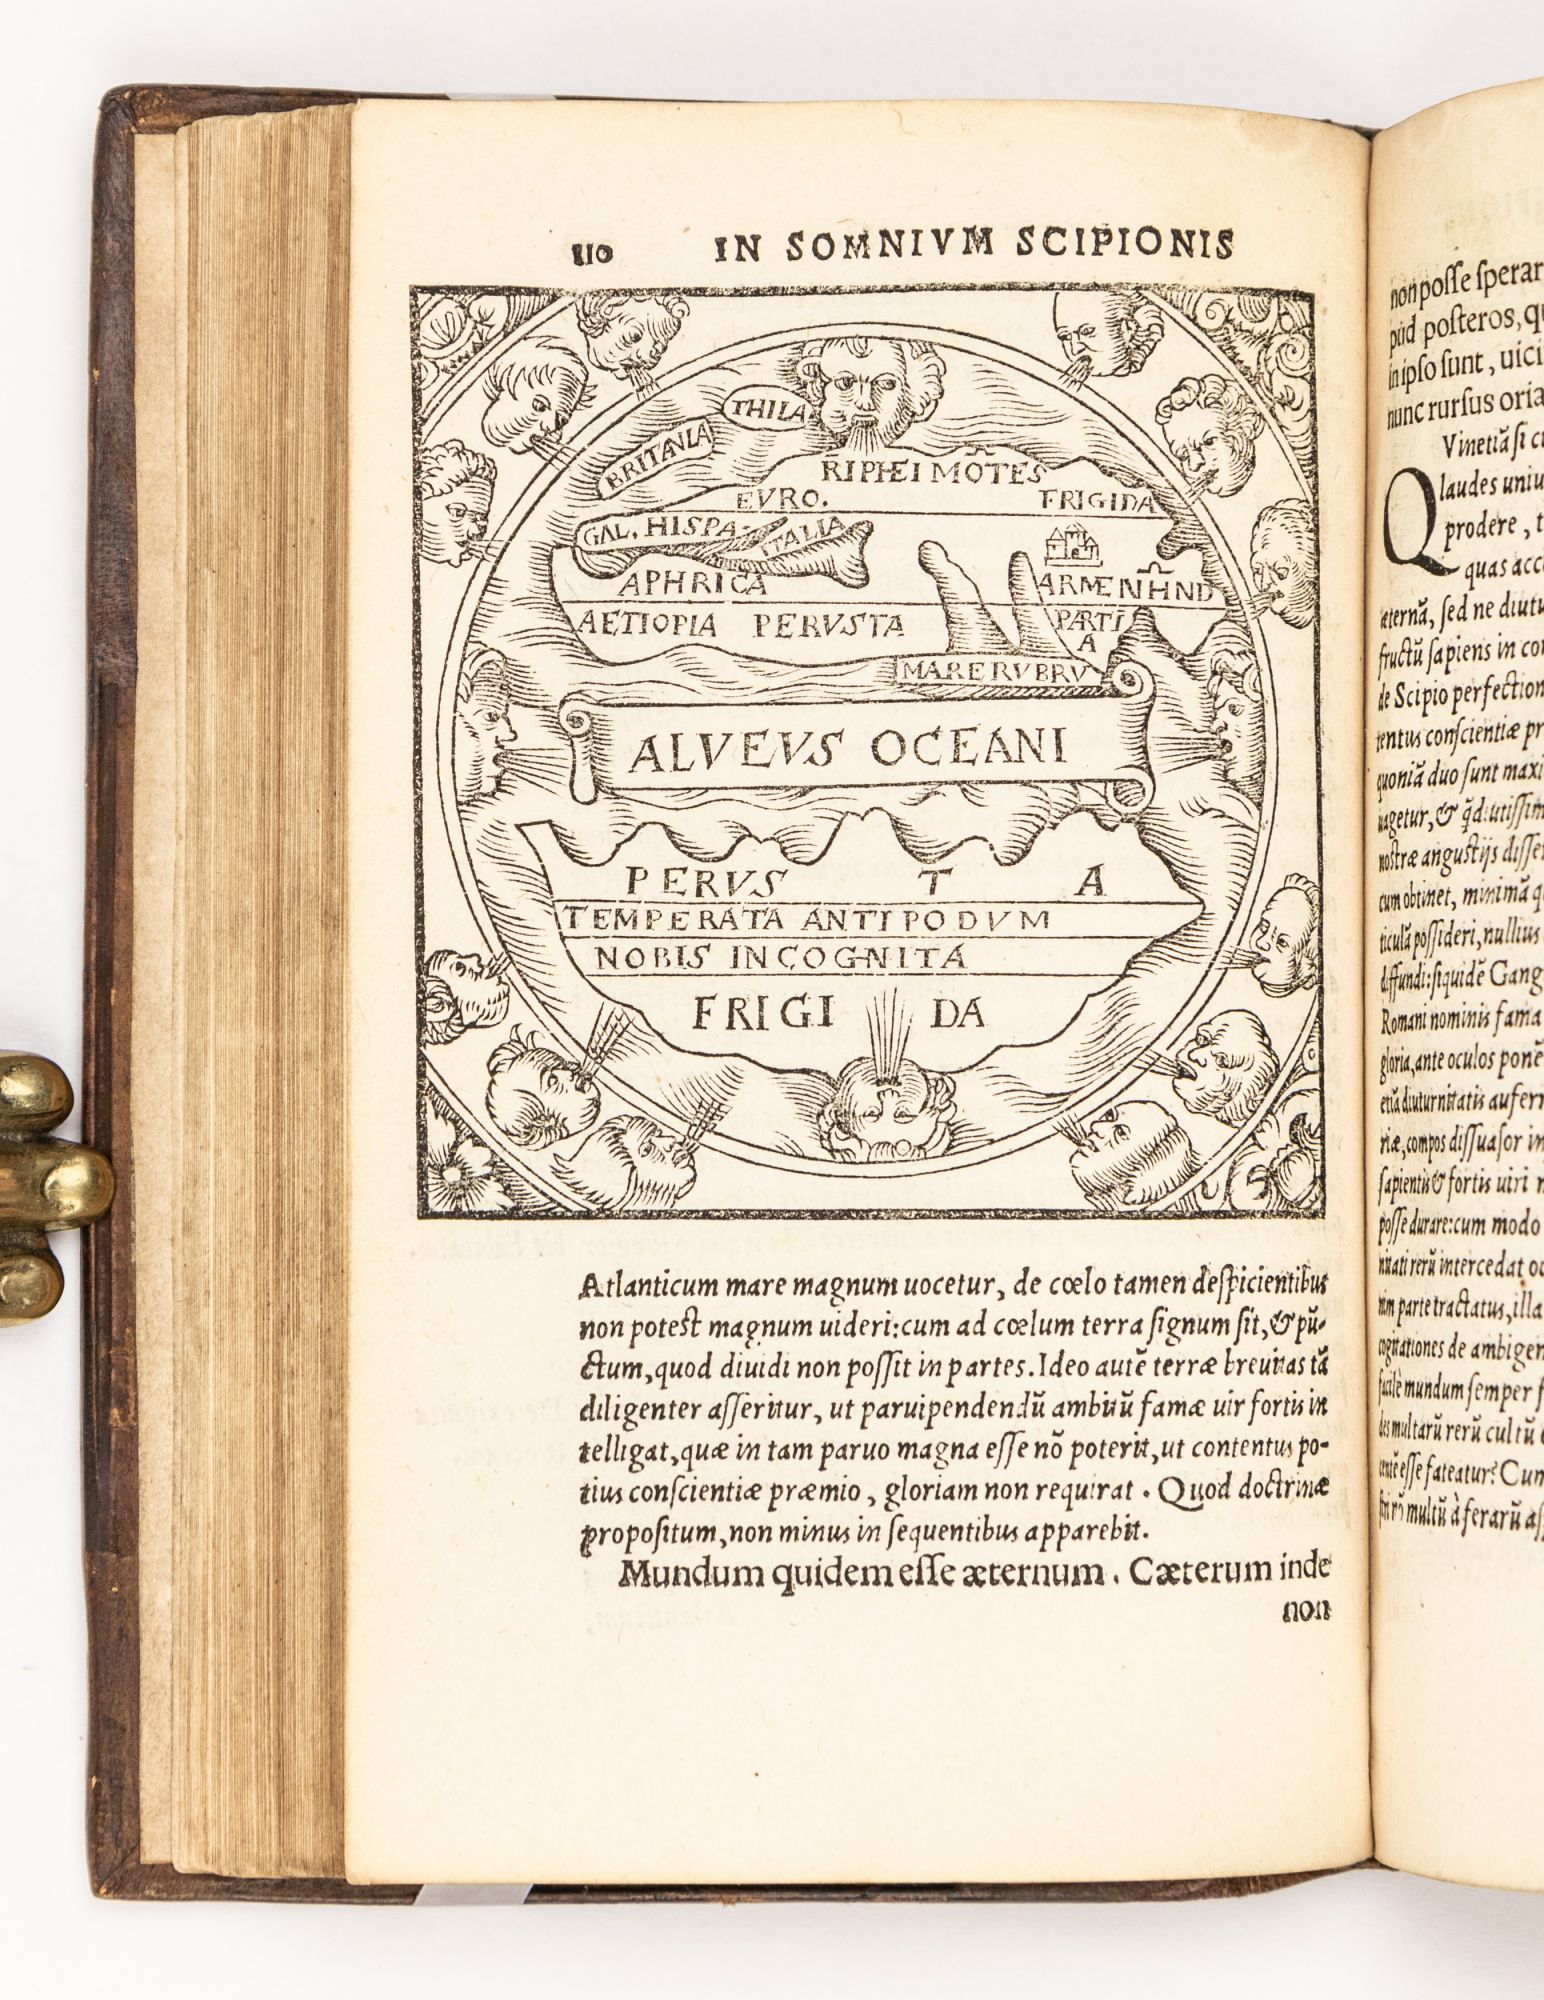 110 IN SOMNIVM SCIPIONIS
THILA
BRITĀNIA
RIPHEI MŌTES
EVRO. FRIGIDA
GAL. HISPA. ITALIA
APHRICA ARMEN
AETIOPIA PERVSTA PARTI
A
MARE RVBRV
ALVEVS OCEANI
PERVS T A
TEMPERATA ANTIPODVM
NOBIS INCOGNITA
FRIGI DA
Atlanticum mare magnum uocetur, de cœlo tamen deſpicientibus
non poteſt magnum uideri: cum ad cœlum terra ſignum ſit, & pū-
ctum, quod diuidi non poſſit in partes. Ideo autē terræ breuitas tā
diligenter aſſeritur, ut paruipendendū ambitū famæ uir fortis in
telligat, quæ in tam paruo magna eſſe nō poterit, ut contentus po-
tius conſcientiæ præmio, gloriam non requirat. Quod doctrinæ
propoſitum, non minus in ſequentibus apparebit.
Mundum quidem eſſe æternum. Cæterum inde
non
non poſſe ſperar
pud poſteros, q
in ipſo ſunt, uici
nunc rurſus oria
Vinetiā ſi c
Q laudes uniu
prodere, t
quas acc
æternā, ſed ne diutu
fructū ſapiens in con
de Scipio perfection
tentus conſcientiæ pr
quoniā duo ſunt maxi
uagetur, & q̃d iutiſſim
noſtræ anguſtijs diſſe
cum obtinet, minimā q
ticulā poſſideri, nullius
diffundi: ſiquidē Gang
Romani nominis fama
gloria, ante oculos ponē
etiā diuturnitatis aufer
riæ, compos diſſuaſor in
ſapientis & fortis uiri
poſſe durare: cum modo
nitati rerū intercedat oc
nim parte tractatus, illa
cogitationes de ambigen
facilè mundum ſemper f
des multarū rerū cultū
eſſe fateatur? Cum
multū à ferarū aſ